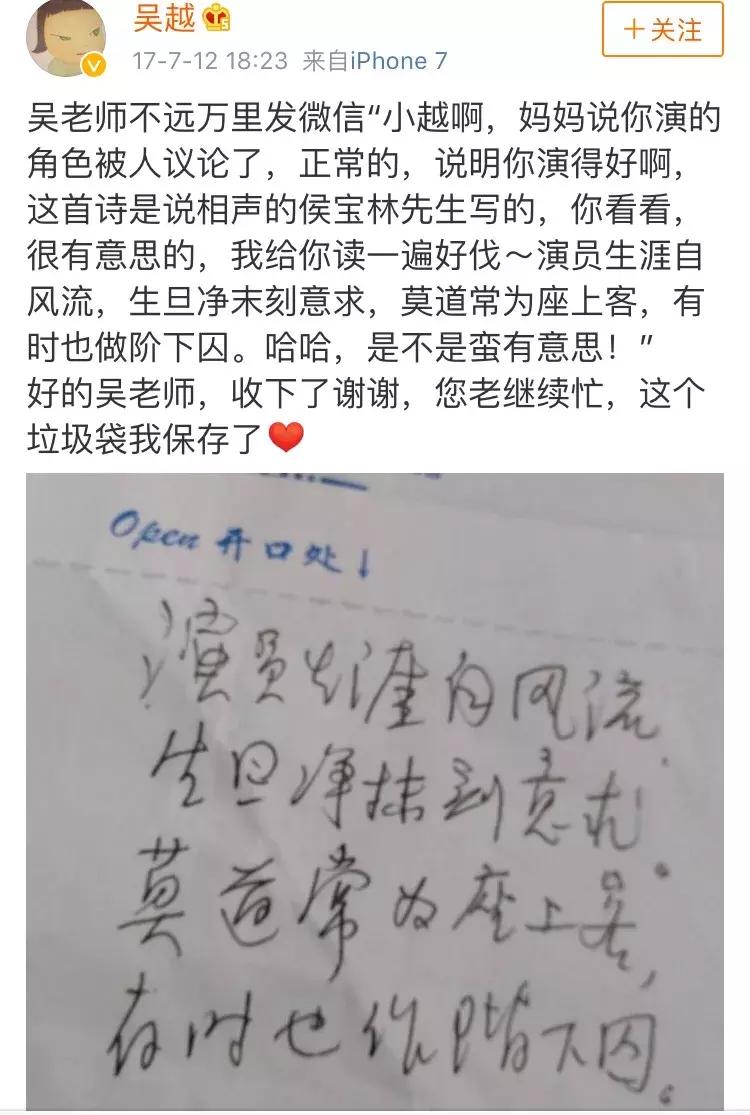 吴越
+关注
17-7-12 18:23 来自iPhone 7
吴老师不远万里发微信“小越啊，妈妈说你演的
角色被人议论了，正常的，说明你演得好啊，
这首诗是说相声的侯宝林先生写的，你看看，
很有意思的，我给你读一遍好伐～演员生涯自
风流，生旦净末刻意求，莫道常为座上客，有
时也做阶下囚。哈哈，是不是蛮有意思！”
好的吴老师，收下了谢谢，您老继续忙，这个
垃圾袋我保存了❤
Open 开口处↓
演员生涯自风流
生旦净抹刻意求。
莫道常为座上客，
有时也作阶下囚。